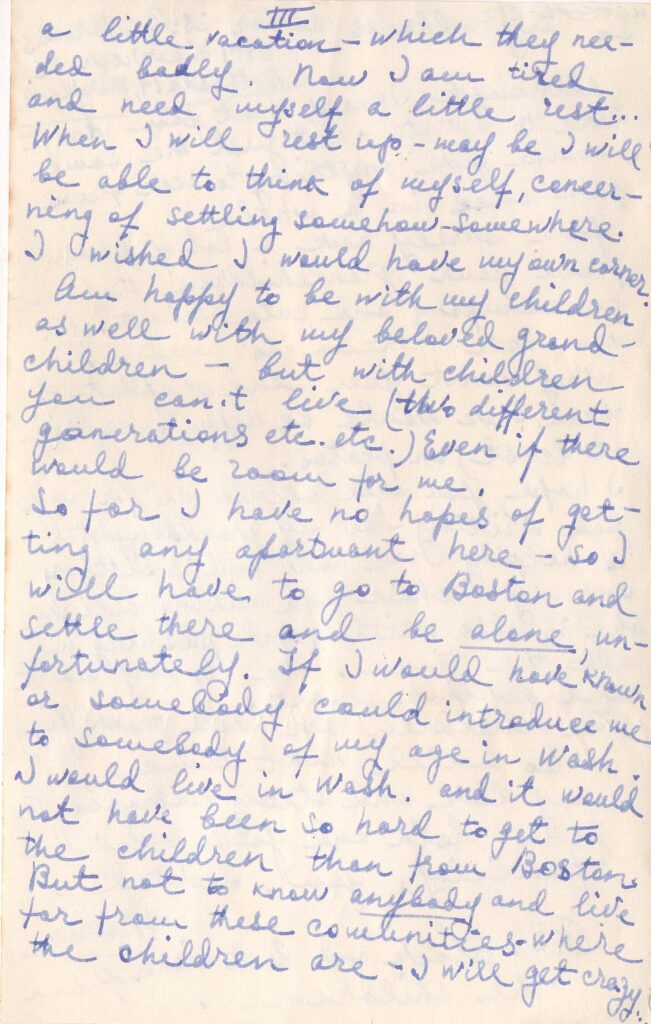 III
a little vacation - which they nee-
ded badly. Now I am tired
and need myself a little rest...
When I will rest up - may be I will
be able to think of myself, concer-
ning of settling somehow-somewhere.
I wished I would have my own corner.
Am happy to be with my children
as well with my beloved grand-
children - but with children
you can't live (two different
ganerations etc. etc.) Even if there
would be room for me.
So far I have no hopes of get-
ting any apartment here - so I
will have to go to Boston and
settle there and be alone, un-
fortunately. If I would have known
or somebody could introduce me
to somebody of my age in Wash.
I would live in Wash. and it would
not have been so hard to get to
the children than from Boston.
But not to know anybody and live
far from these comunities-where
the children are - I will get crazy..